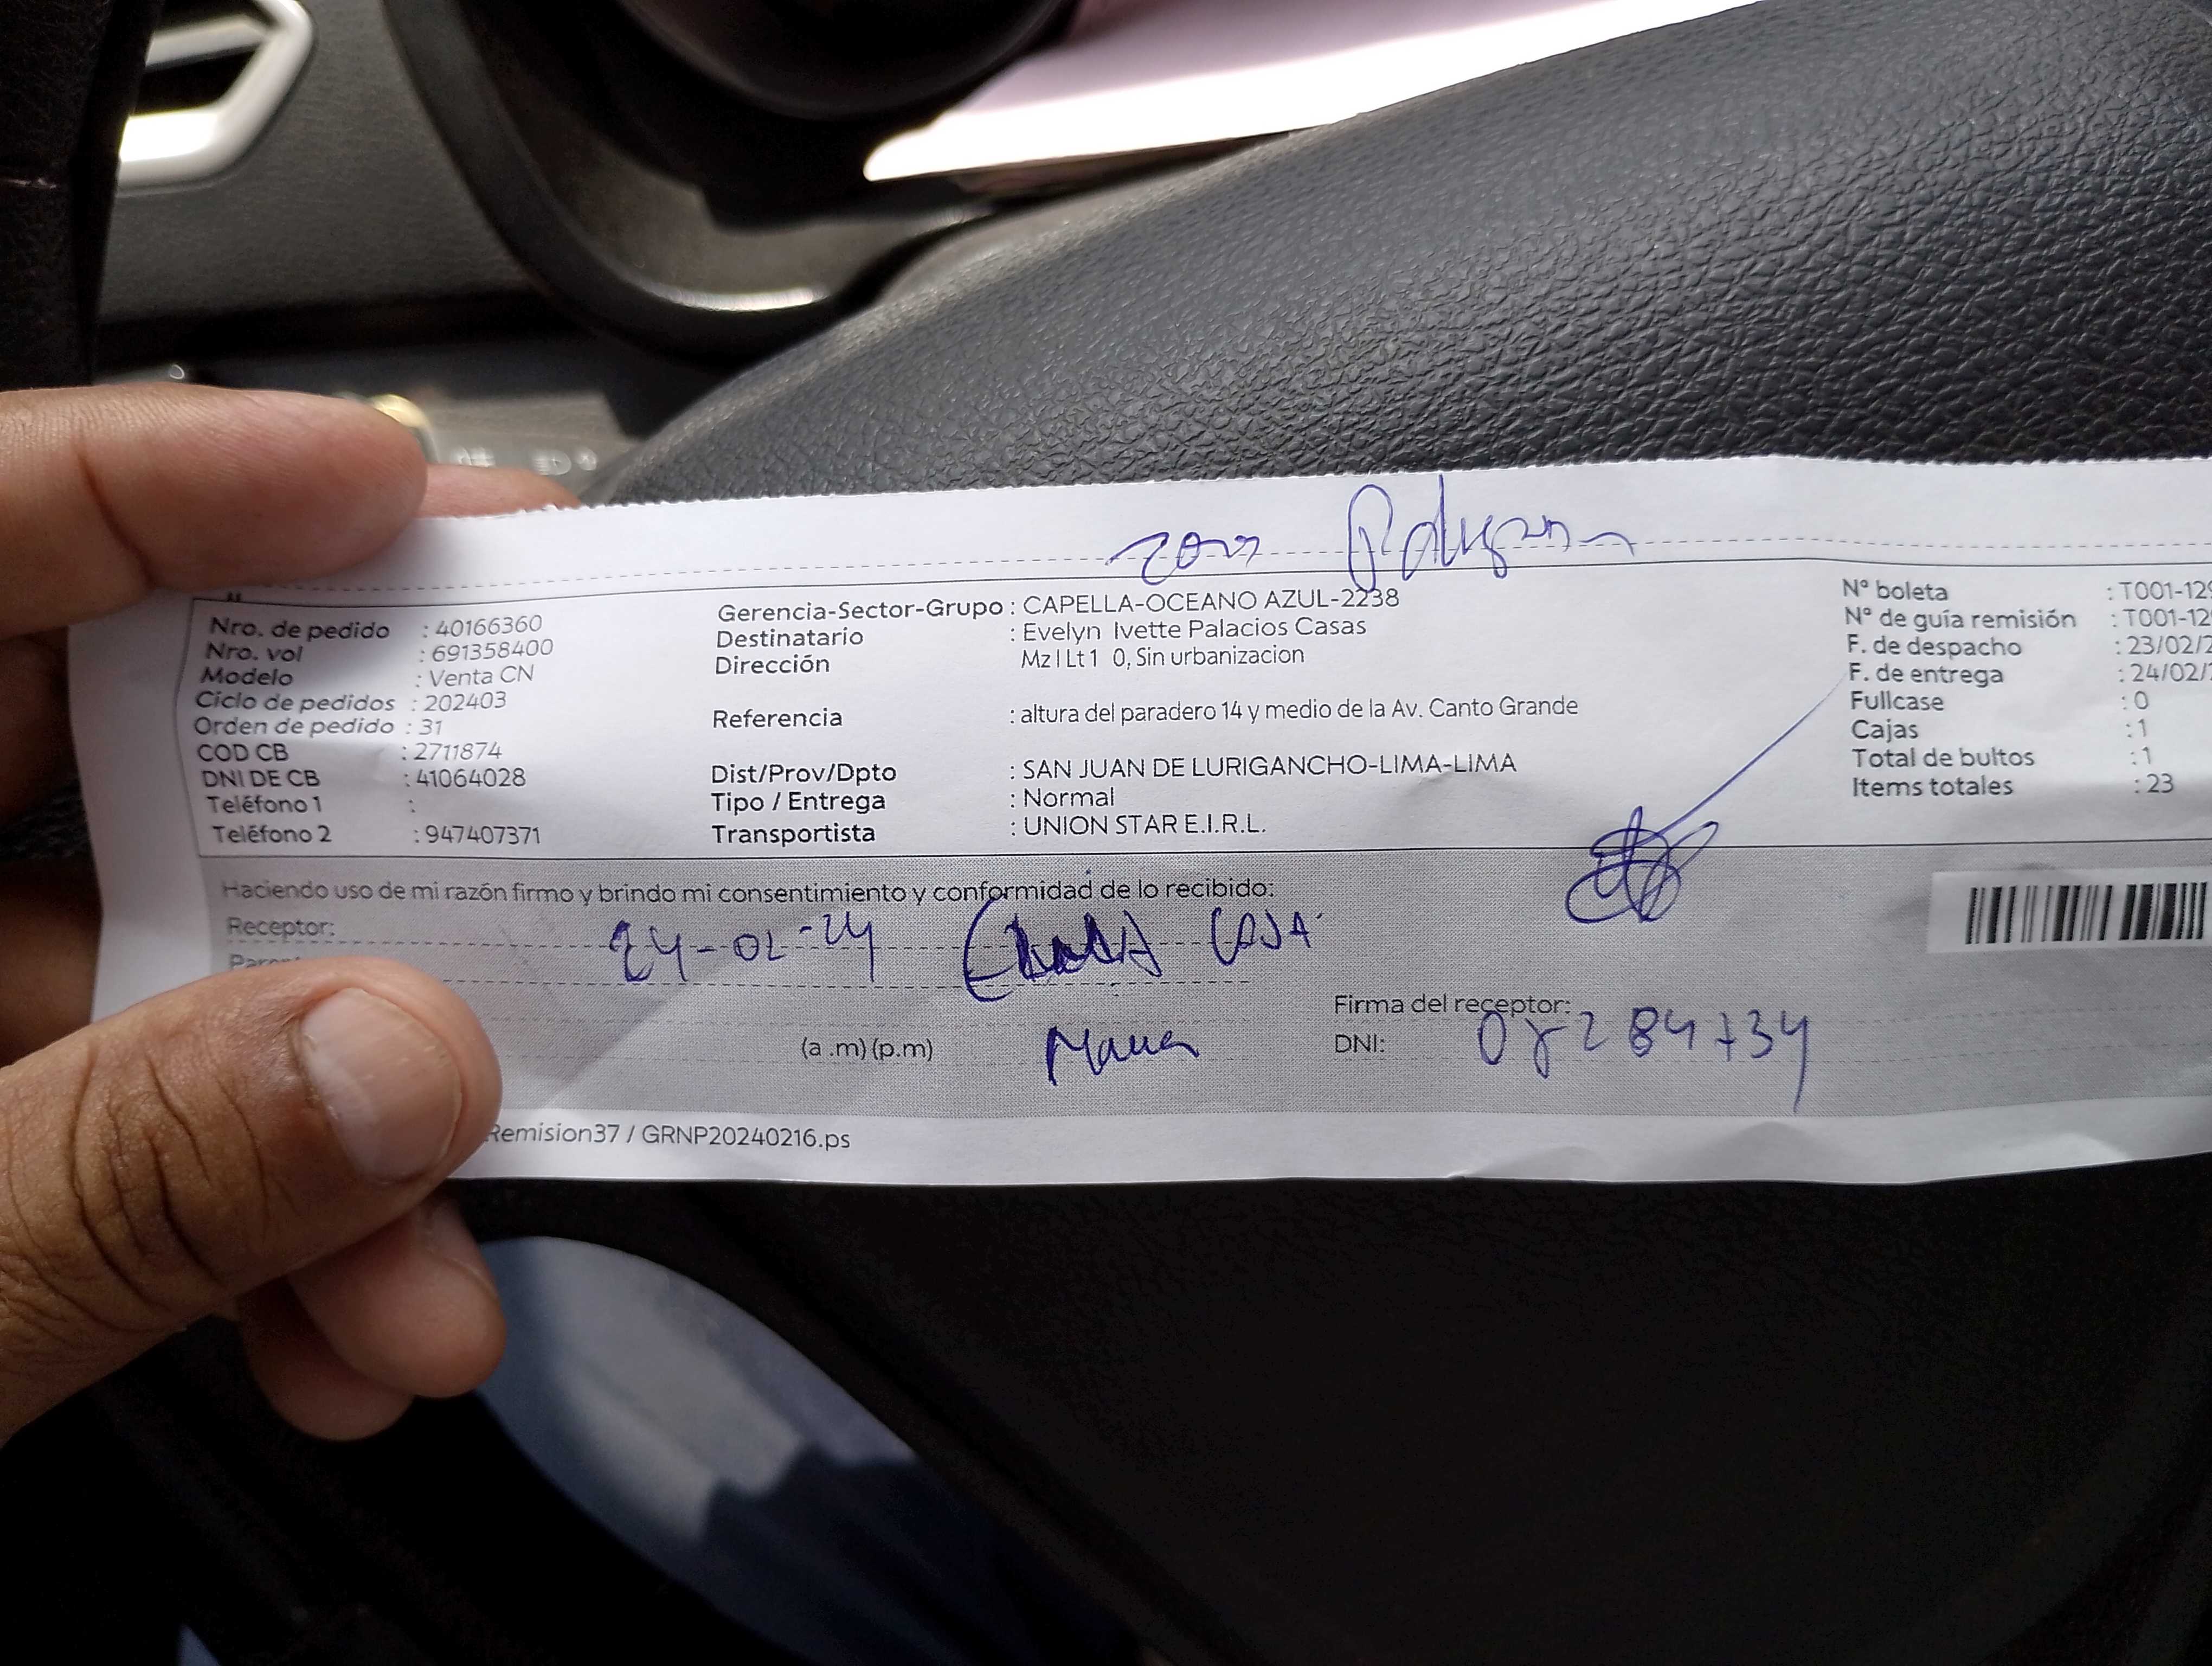 Nro. de pedido : 40166360
Nro. vol : 691358400
Modelo : Venta CN
Ciclo de pedidos : 202403
Orden de pedido : 31
COD CB : 2711874
DNI DE CB : 41064028
Teléfono 1 :
Teléfono 2 : 947407371
Gerencia-Sector-Grupo : CAPELLA-OCEANO AZUL-2238
Destinatario : Evelyn Ivette Palacios Casas
Dirección Mz I Lt 1 0, Sin urbanizacion
Referencia : altura del paradero 14 y medio de la Av. Canto Grande
Dist/Prov/Dpto : SAN JUAN DE LURIGANCHO-LIMA-LIMA
Tipo / Entrega : Normal
Transportista : UNION STAR E.I.R.L.
N° boleta : T001-12
N° de guía remisión : T001-12
F. de despacho : 23/02/2
F. de entrega : 24/02/
Fullcase : 0
Cajas : 1
Total de bultos : 1
Items totales : 23
Haciendo uso de mi razón firmo y brindo mi consentimiento y conformidad de lo recibido:
Receptor: 24-02-24
(a .m) (p.m)
Firma del receptor:
DNI:
Remision37 / GRNP20240216.ps